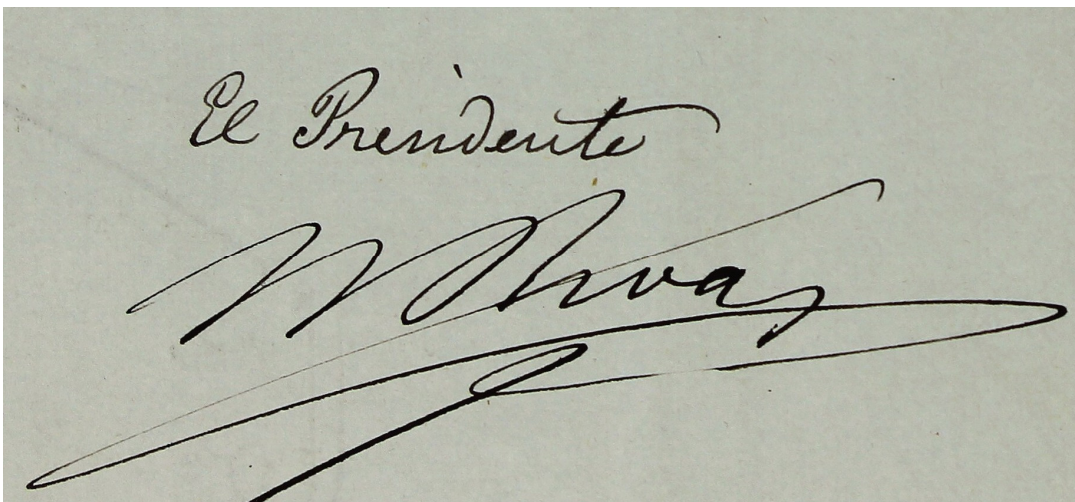 El Presidente
M Rivas